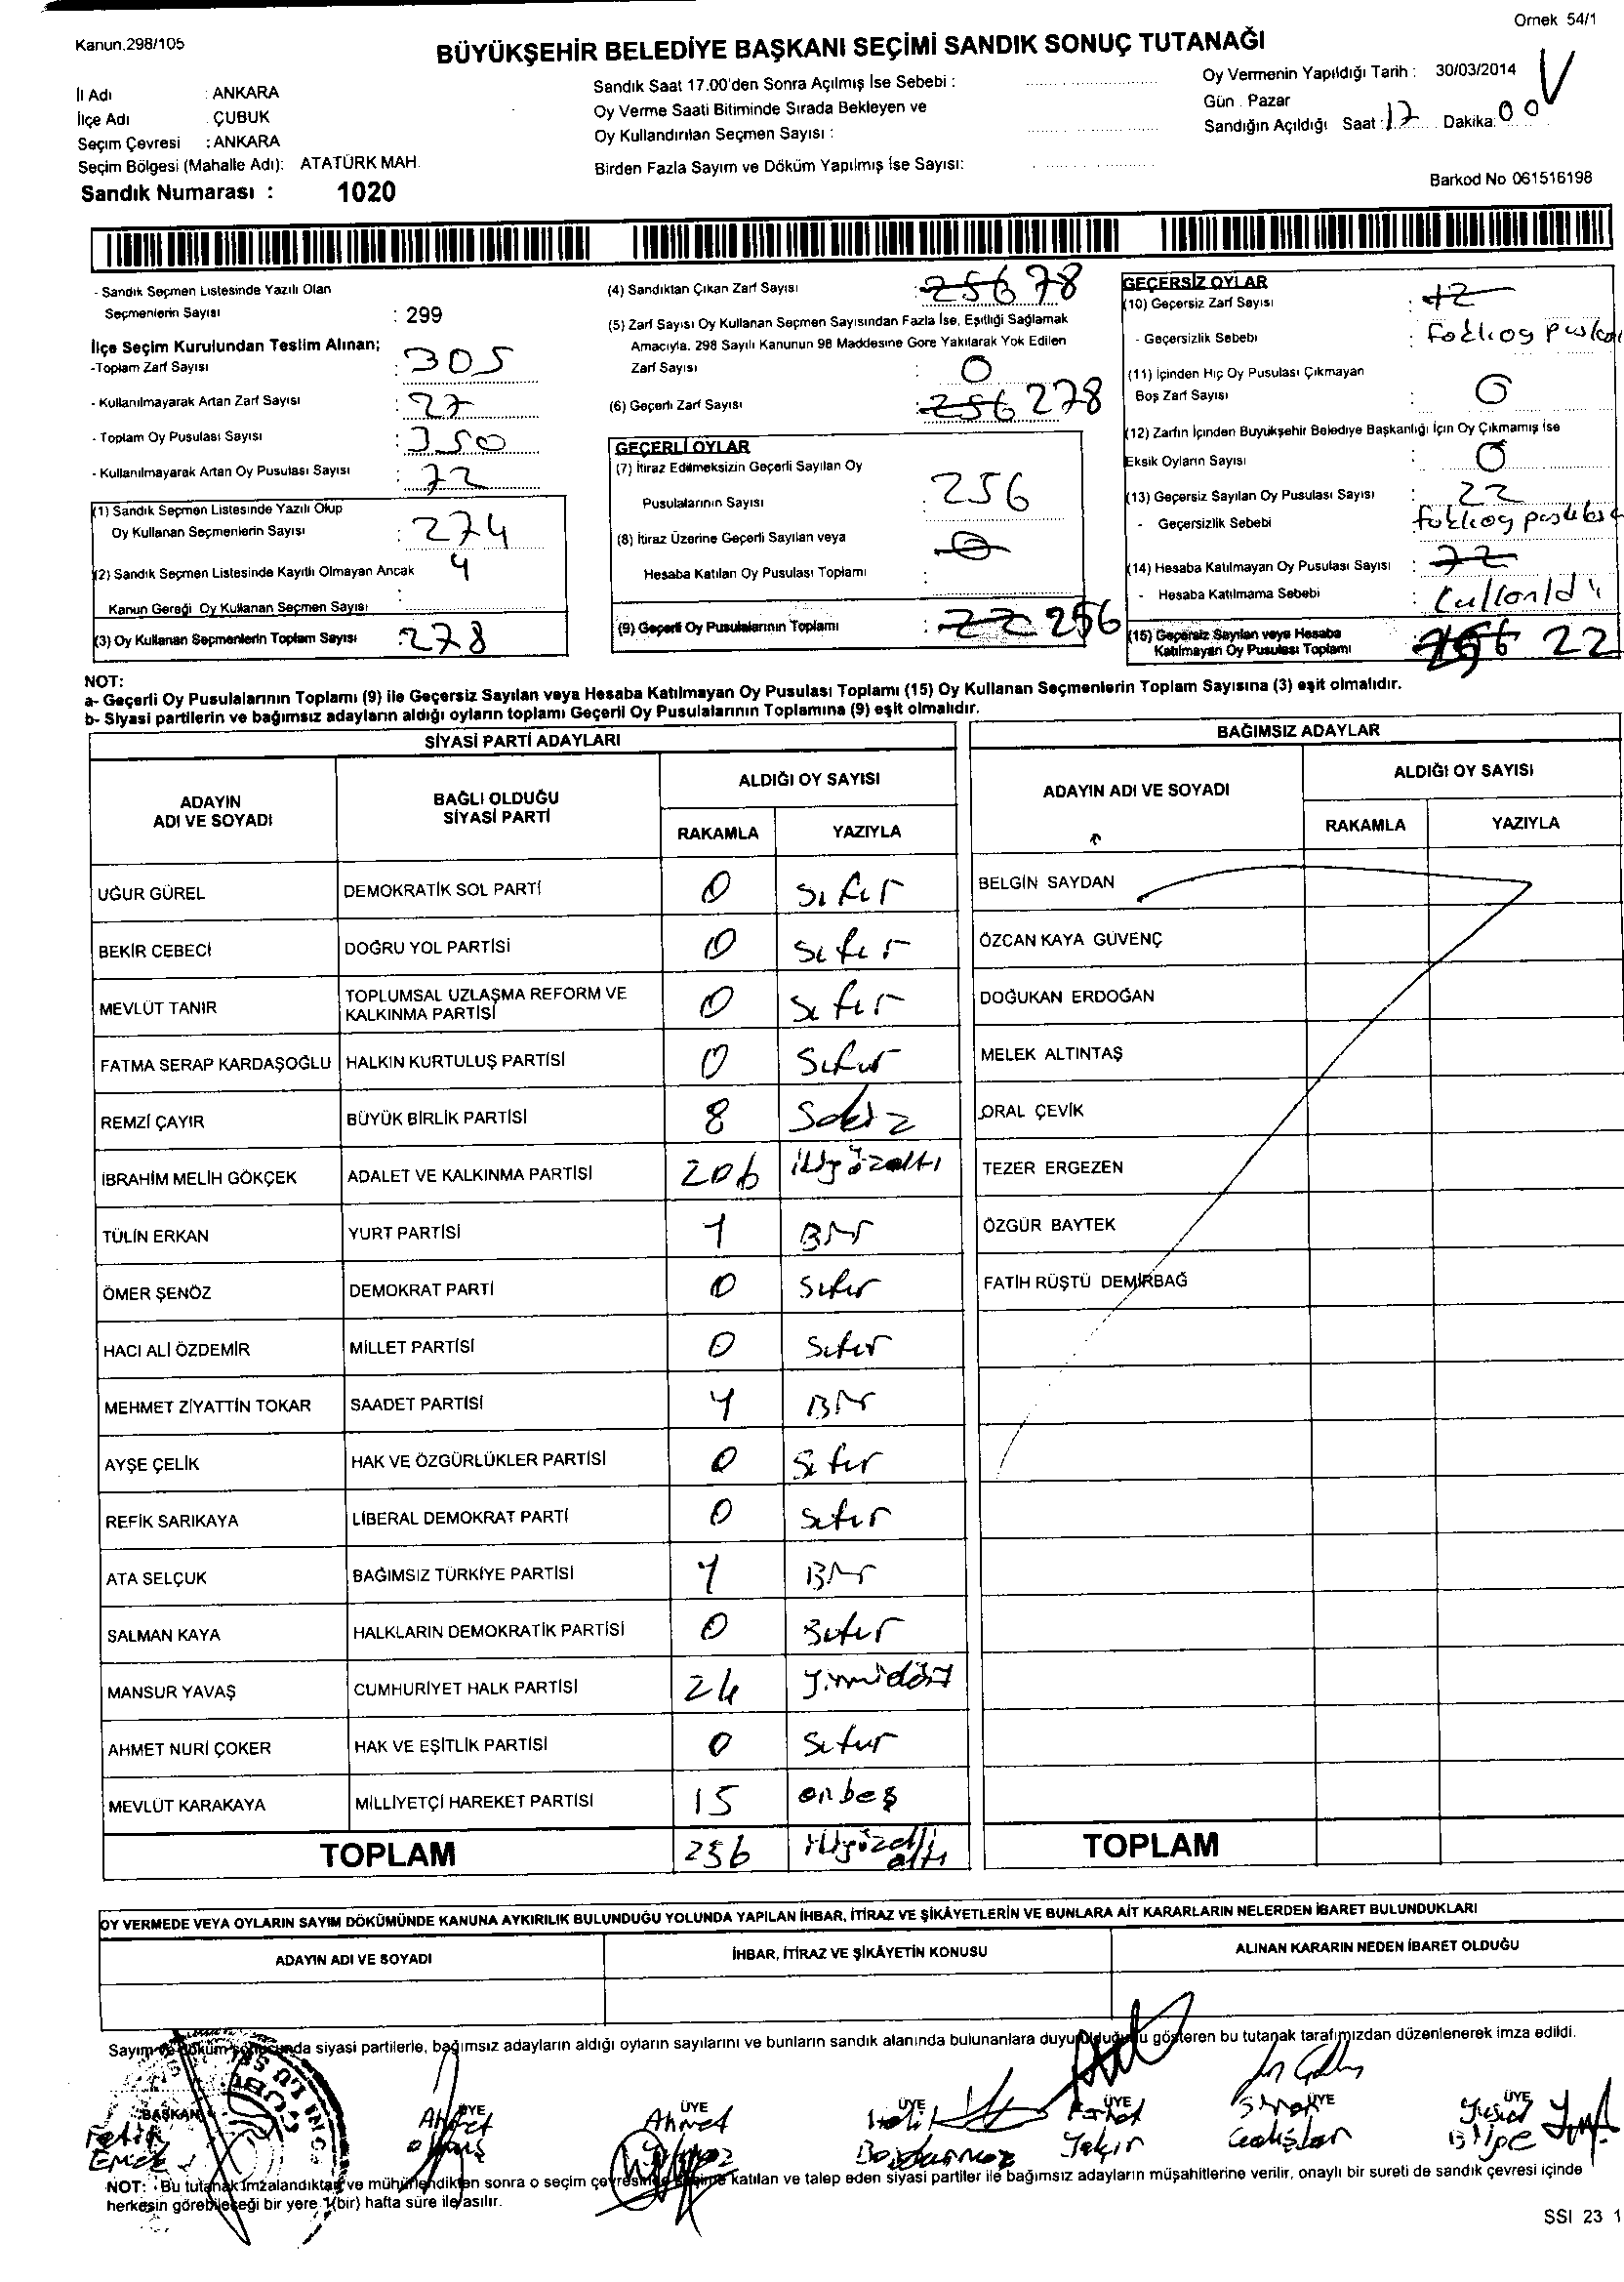 Ornek 54/1
Kanun.298/105
BÜYÜKŞEHİR BELEDİYE BAŞKANI SEÇİMİ SANDIK SONUÇ TUTANAĞI
İl Adı : ANKARA
İlçe Adı ÇUBUK
Seçim Çevresi : ANKARA
Seçim Bölgesi (Mahalle Adı): ATATÜRK MAH.
Sandık Numarası : 1020
Sandık Saat 17.00'den Sonra Açılmış İse Sebebi :
Oy Verme Saati Bitiminde Sırada Bekleyen ve
Oy Kullandırılan Seçmen Sayısı :
Birden Fazla Sayım ve Döküm Yapılmış İse Sayısı:
Oy Vermenin Yapıldığı Tarih : 30/03/2014
Gün Pazar
Sandığın Açıldığı Saat : 17 Dakika: 00
Barkod No 061516198
- Sandık Seçmen Listesinde Yazılı Olan
Seçmenlerin Sayısı : 299
İlçe Seçim Kurulundan Teslim Alınan;
-Toplam Zarf Sayısı : 305
- Kullanılmayarak Artan Zarf Sayısı : 27
- Toplam Oy Pusulası Sayısı : 350
- Kullanılmayarak Artan Oy Pusulası Sayısı : 72
(1) Sandık Seçmen Listesinde Yazılı Olup
Oy Kullanan Seçmenlerin Sayısı : 274
(2) Sandık Seçmen Listesinde Kayıtlı Olmayan Ancak 4
Kanun Gereği Oy Kullanan Seçmen Sayısı :
(3) Oy Kullanan Seçmenlerin Toplam Sayısı : 278
(4) Sandıktan Çıkan Zarf Sayısı : 256 78
(5) Zarf Sayısı Oy Kullanan Seçmen Sayısından Fazla İse, Eşitliği Sağlamak
Amacıyla, 298 Sayılı Kanunun 98 Maddesine Gore Yakılarak Yok Edilen
Zarf Sayısı : 0
(6) Geçerli Zarf Sayısı : 256 278
GEÇERLİ OYLAR
(7) İtiraz Edilmeksizin Geçerli Sayılan Oy
Pusulalarının Sayısı : 256
(8) İtiraz Üzerine Geçerli Sayılan veya 0
Hesaba Katılan Oy Pusulası Toplamı :
(9) Geçerli Oy Pusulalarının Toplamı : 22 256
GEÇERSİZ OYLAR
(10) Geçersiz Zarf Sayısı : 12
- Geçersizlik Sebebi :
(11) İçinden Hiç Oy Pusulası Çıkmayan
Boş Zarf Sayısı : 0
(12) Zarfın İçinden Buyukşehir Belediye Başkanlığı İçin Oy Çıkmamış İse
Eksik Oyların Sayısı : 0
(13) Geçersiz Sayılan Oy Pusulası Sayısı : 22
- Geçersizlik Sebebi :
(14) Hesaba Katılmayan Oy Pusulası Sayısı : 72
- Hesaba Katılmama Sebebi :
(15) Geçersiz Sayılan veya Hesaba
Katılmayan Oy Pusulası Toplamı 256 22
NOT:
a- Geçerli Oy Pusulalarının Toplamı (9) ile Geçersiz Sayılan veya Hesaba Katılmayan Oy Pusulası Toplamı (15) Oy Kullanan Seçmenlerin Toplam Sayısına (3) eşit olmalıdır.
b- Siyasi partilerin ve bağımsız adayların aldığı oyların toplamı Geçerli Oy Pusulalarının Toplamına (9) eşit olmalıdır.
SİYASİ PARTİ ADAYLARI
ADAYIN ADI VE SOYADI BAĞLI OLDUĞU SİYASİ PARTİ ALDIĞI OY SAYISI
RAKAMLA YAZIYLA
UĞUR GÜREL DEMOKRATİK SOL PARTİ 0 Sıfır
BEKİR CEBECİ DOĞRU YOL PARTİSİ 0 Sıfır
MEVLÜT TANIR TOPLUMSAL UZLAŞMA REFORM VE KALKINMA PARTİSİ 0 Sıfır
FATMA SERAP KARDAŞOĞLU HALKIN KURTULUŞ PARTİSİ 0 Sıfır
REMZİ ÇAYIR BÜYÜK BİRLİK PARTİSİ 8 Sekiz
İBRAHİM MELİH GÖKÇEK ADALET VE KALKINMA PARTİSİ 206 ikiyüzaltı
TÜLİN ERKAN YURT PARTİSİ 1 Bir
ÖMER ŞENÖZ DEMOKRAT PARTİ 0 Sıfır
HACI ALİ ÖZDEMİR MİLLET PARTİSİ 0 Sıfır
MEHMET ZİYATTİN TOKAR SAADET PARTİSİ 1 Bir
AYŞE ÇELİK HAK VE ÖZGÜRLÜKLER PARTİSİ 0 Sıfır
REFİK SARIKAYA LİBERAL DEMOKRAT PARTİ 0 Sıfır
ATA SELÇUK BAĞIMSIZ TÜRKİYE PARTİSİ 1 Bir
SALMAN KAYA HALKLARIN DEMOKRATİK PARTİSİ 0 Sıfır
MANSUR YAVAŞ CUMHURİYET HALK PARTİSİ 24 Yirmidört
AHMET NURİ ÇOKER HAK VE EŞİTLİK PARTİSİ 0 Sıfır
MEVLÜT KARAKAYA MİLLİYETÇİ HAREKET PARTİSİ 15 onbeş
TOPLAM 256 ikiyüzelli altı
BAĞIMSIZ ADAYLAR
ADAYIN ADI VE SOYADI ALDIĞI OY SAYISI
RAKAMLA YAZIYLA
BELGİN SAYDAN
ÖZCAN KAYA GÜVENÇ
DOĞUKAN ERDOĞAN
MELEK ALTINTAŞ
ORAL ÇEVİK
TEZER ERGEZEN
ÖZGÜR BAYTEK
FATİH RÜŞTÜ DEMİRBAĞ
TOPLAM
OY VERMEDE VEYA OYLARIN SAYIM DÖKÜMÜNDE KANUNA AYKIRILIK BULUNDUĞU YOLUNDA YAPILAN İHBAR, İTİRAZ VE ŞİKÂYETLERİN VE BUNLARA AİT KARARLARIN NELERDEN İBARET BULUNDUKLARI
ADAYIN ADI VE SOYADI İHBAR, İTİRAZ VE ŞİKÂYETİN KONUSU ALINAN KARARIN NEDEN İBARET OLDUĞU
Sayım ve döküm sonucunda siyasi partilerle, bağımsız adayların aldığı oyların sayılarını ve bunların sandık alanında bulunanlara duyurulduğunu gösteren bu tutanak tarafımızdan düzenlenerek imza edildi.
BAŞKAN ÜYE ÜYE ÜYE ÜYE ÜYE ÜYE
Ahmet Ahmet
NOT: Bu tutanak imzalandıktan ve mühürlendikten sonra o seçim çevresinde seçime katılan ve talep eden siyasi partiler ile bağımsız adayların müşahitlerine verilir, onaylı bir sureti de sandık çevresi içinde
herkesin görebileceği bir yere 1(bir) hafta süre ile asılır.
SSI 23 1